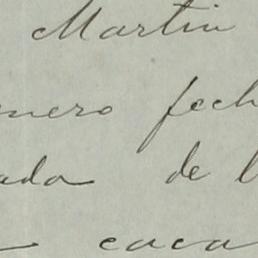 Martin
nero fech
ada de l
caca